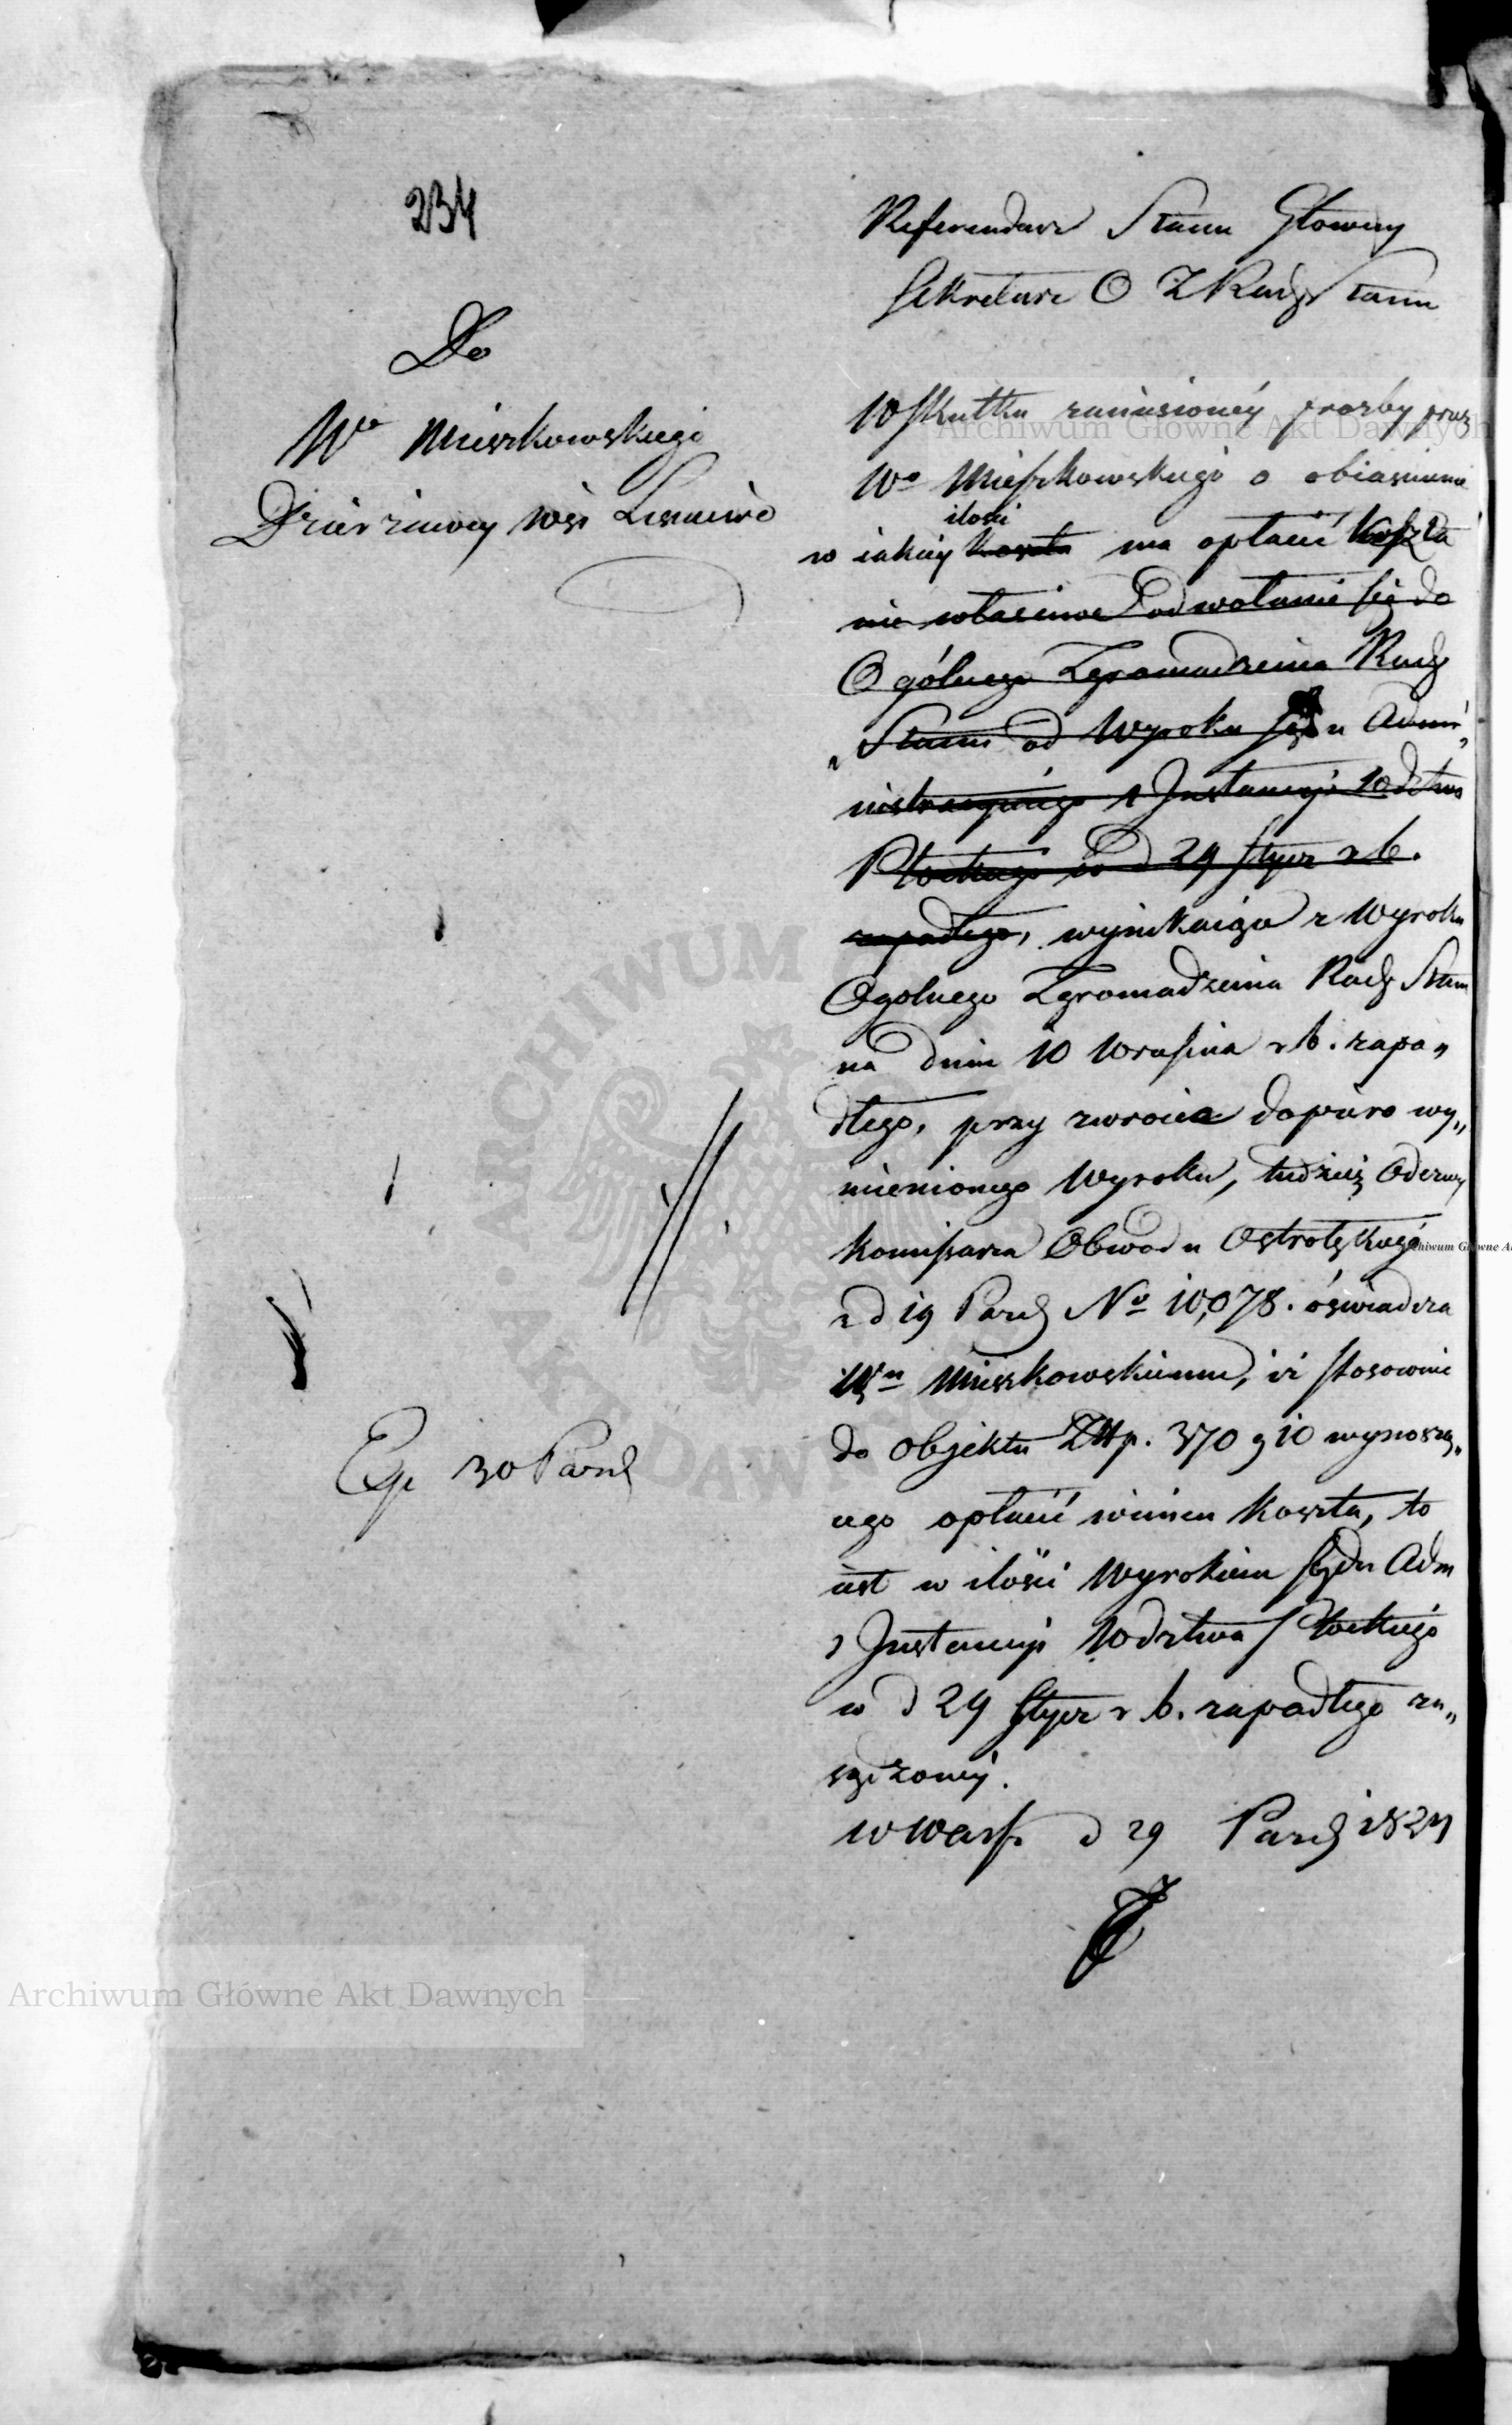 234
Do
Wo Mieszkowskiego
Dzierżawcy wsi
Exp 30 Pazd
Referendarz Stanu Głowny
Sekretarz O Z Rady Stanu
W Skutku zaniesioney prozby przez
Wo Mieszkowskiego o obiasnienie
ilosci
w iakiey koszta ma opłacić koszta
nie własciwe odwołanie się do
Ogólnego Zgromadzenia Rady
Stanu od Wyroku Sądu Admi„
nistracyinego 1 Instancyi Wdztwa
Płockiego w d 24 Stycz r b.
zapadłego, wynikaiące z Wyroku
Ogolnego Zgromadzenia Rady Stanu
na dniu 10 Wrzesnia r b. zapa„
dłego, przy zwrocie dopiero wy„
mienionego Wyroku, tudzież Odezwy
Komissarza Obwodu Ostrołęckiego
z d 19 Pazd No 10,078. oświadcza
Wu Mieszkowskiemu, iż stosownie
do objektu Złtp. 370 g 10 wynoszą„
cego opłacić winien koszta, to
iest w ilości Wyrokiem Sądu Adm
1 Instancyi Wdztwa Płockiego
w d 24 Stycz r b. zapadłego za„
sądzoney.
w Warsz. d 29 Pazd 1827
Archiwum Główne Akt Dawnych
Archiwum Główne Akt Dawnych
ARCHIWUM
AKT DAWNYCH